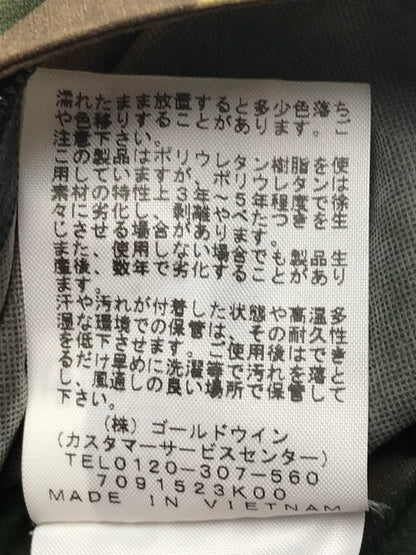 濡れたまま放置すると多少色落ち
や色移りすることがあります。ご
注意下さい。
この製品はポリウレタン樹脂を使
用
素材の特性上、3年〜5年程度で徐
々に劣化し、剥離やべたつきを生
じさせます。
また、使用しない場合でも 生
産後、数年で劣化することもあり
ます。
汗や汚れが付着した状態や高温多
湿な環境での保管は、その耐久性
を低下させます。ご使用後はでき
るだけ早めに洗濯等で汚れを落と
し、風通しの良い場所で保管して
下さい。
(株)ゴールドウイン
(カスタマーサービスセンター)
TEL0120-307-560
7091523K00
MADE IN VIETNAM